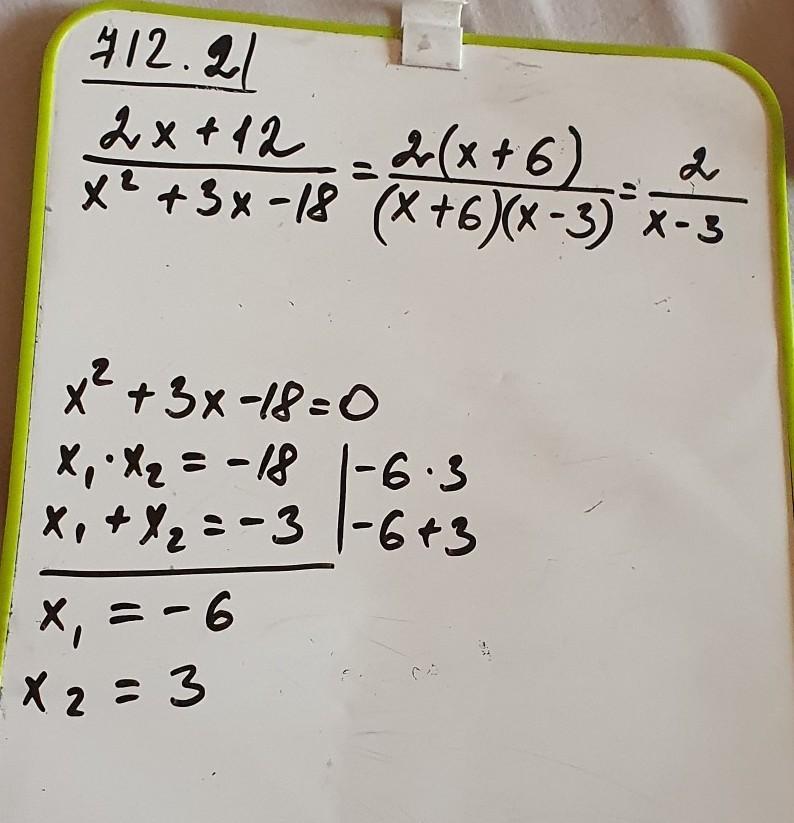 712.2)
2x+12 / x² +3x-18 = 2(x+6) / (x+6)(x-3) = 2 / x-3
x² +3x-18=0
x₁·x₂ = -18 | -6·3
x₁+x₂=-3 | -6+3
x₁ = -6
x₂ = 3